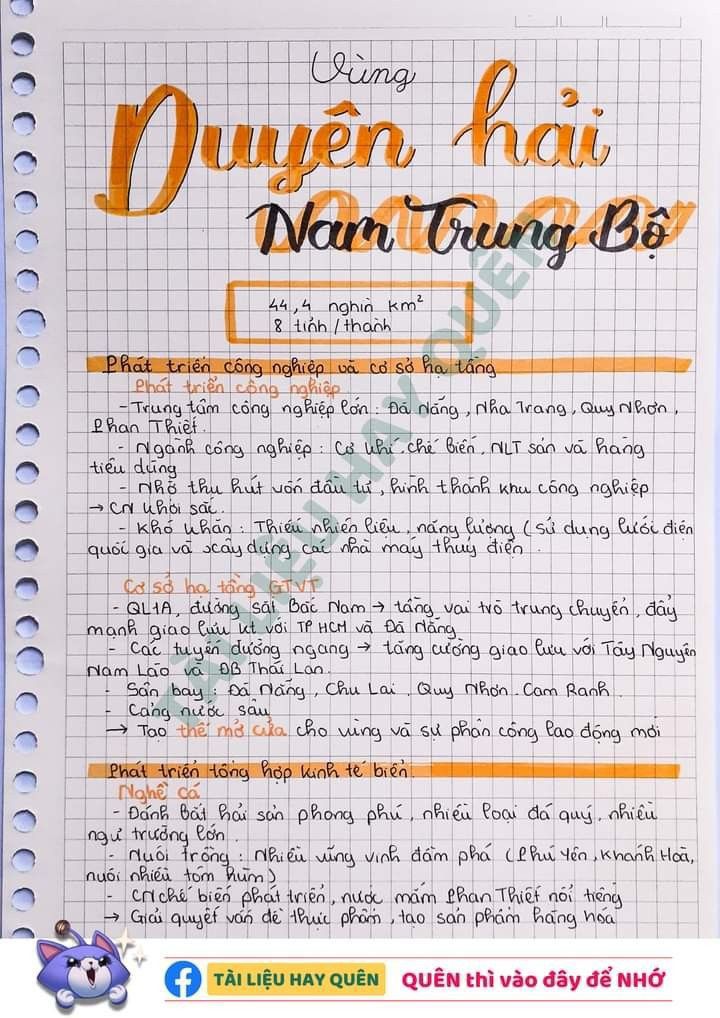 Vùng
Duyên hải
Nam Trung Bộ
44,4 nghìn km²
8 tỉnh/thành
Phát triển công nghiệp và cơ sở hạ tầng
Phát triển công nghiệp
- Trung tâm công nghiệp lớn: Đà Nẵng, Nha Trang, Quy Nhơn,
Phan Thiết.
- Ngành công nghiệp: Cơ khí, chế biến, NLT sản và hàng
tiêu dùng
- Nhờ thu hút vốn đầu tư, hình thành khu công nghiệp
→ CN khởi sắc.
- Khó khăn: Thiếu nhiên liệu, năng lượng (sử dụng lưới điện
quốc gia và xây dựng các nhà máy thủy điện.
Cơ sở hạ tầng GTVT
- QL1A, đường sắt Bắc Nam → tăng vai trò trung chuyển, đẩy
mạnh giao lưu kt với TP HCM và Đà Nẵng
- Các tuyến đường ngang → tăng cường giao lưu với Tây Nguyên
Nam Lào và ĐB Thái Lan.
- Sân bay: Đà Nẵng, Chu Lai, Quy Nhơn. Cam Ranh.
- Cảng nước sâu
→ Tạo thế mở cửa cho vùng và sự phân công lao động mới
Phát triển tổng hợp kinh tế biển.
Nghề cá
- Đánh bắt hải sản phong phú, nhiều loại đá quý, nhiều
ngư trường lớn.
- Nuôi trồng: Nhiều vũng vịnh đầm phá (Phú Yên, Khánh Hoà,
nuôi nhiều tôm hùm)
- CN chế biến phát triển, nước mắm Phan Thiết nổi tiếng
→ Giải quyết vấn đề thực phẩm, tạo sản phẩm hàng hóa
TÀI LIỆU HAY QUÊN
TÀI LIỆU HAY QUÊN
QUÊN thì vào đây để NHỚ